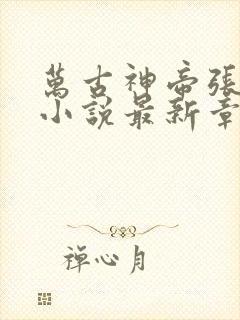 萬古神帝張
小說最新章
禪心月